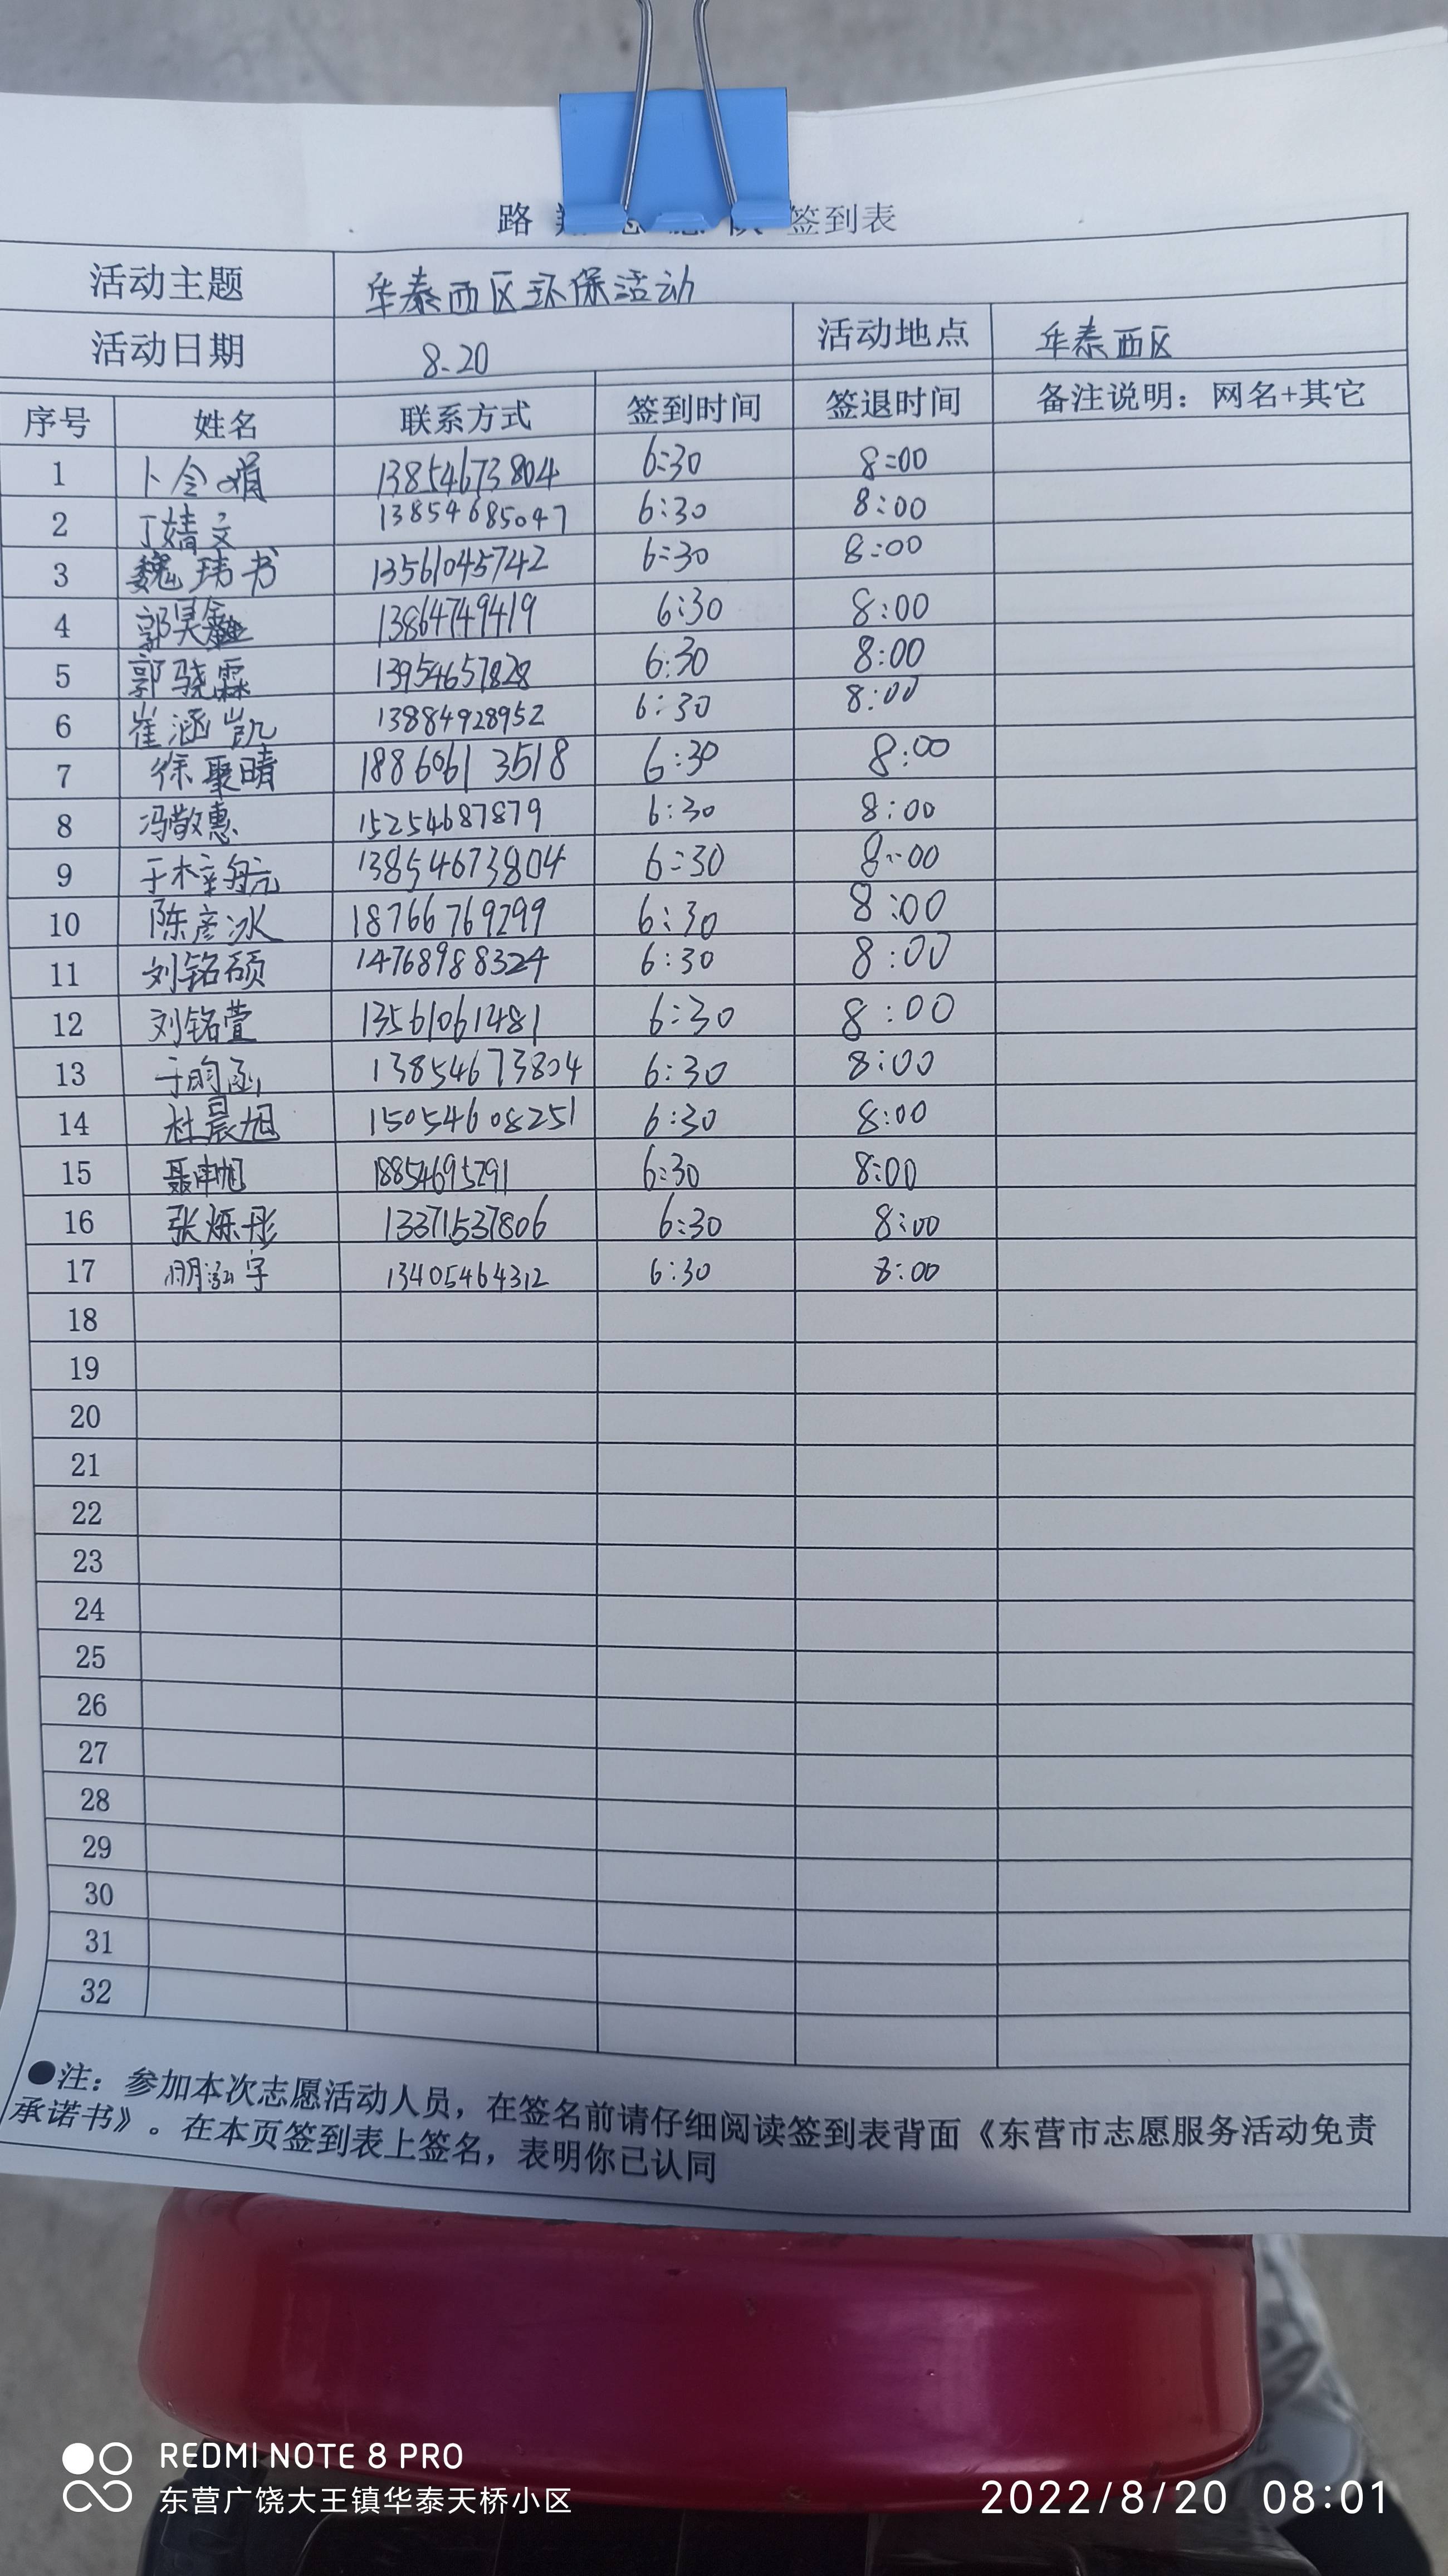 路 翔 志 愿 队 签到表
活动主题 华泰西区环保活动
活动日期 8.20 活动地点 华泰西区
序号 姓名 联系方式 签到时间 签退时间 备注说明：网名+其它
1 卜令娟 13854673804 6:30 8:00
2 丁婧文 13854685047 6:30 8:00
3 魏玮书 13561045742 6:30 8:00
4 郭昊鑫 13864749419 6:30 8:00
5 郭骁霖 13954657828 6:30 8:00
6 崔涵凯 13884928952 6:30 8:00
7 徐聚晴 18860613518 6:30 8:00
8 冯敬惠 15254687879 6:30 8:00
9 于梓航 13854673804 6:30 8:00
10 陈彦冰 18766769299 6:30 8:00
11 刘铭硕 14768988324 6:30 8:00
12 刘铭萱 13561061481 6:30 8:00
13 13854673804 6:30 8:00
14 杜晨旭 15054608251 6:30 8:00
15 18854695291 6:30 8:00
16 张烁彤 13371537806 6:30 8:00
17 13405464312 6:30 8:00
18
19
20
21
22
23
24
25
26
27
28
29
30
31
32
●注：参加本次志愿活动人员，在签名前请仔细阅读签到表背面《东营市志愿服务活动免责
承诺书》。在本页签到表上签名，表明你已认同
REDMI NOTE 8 PRO
东营广饶大王镇华泰天桥小区
2022/8/20 08:01